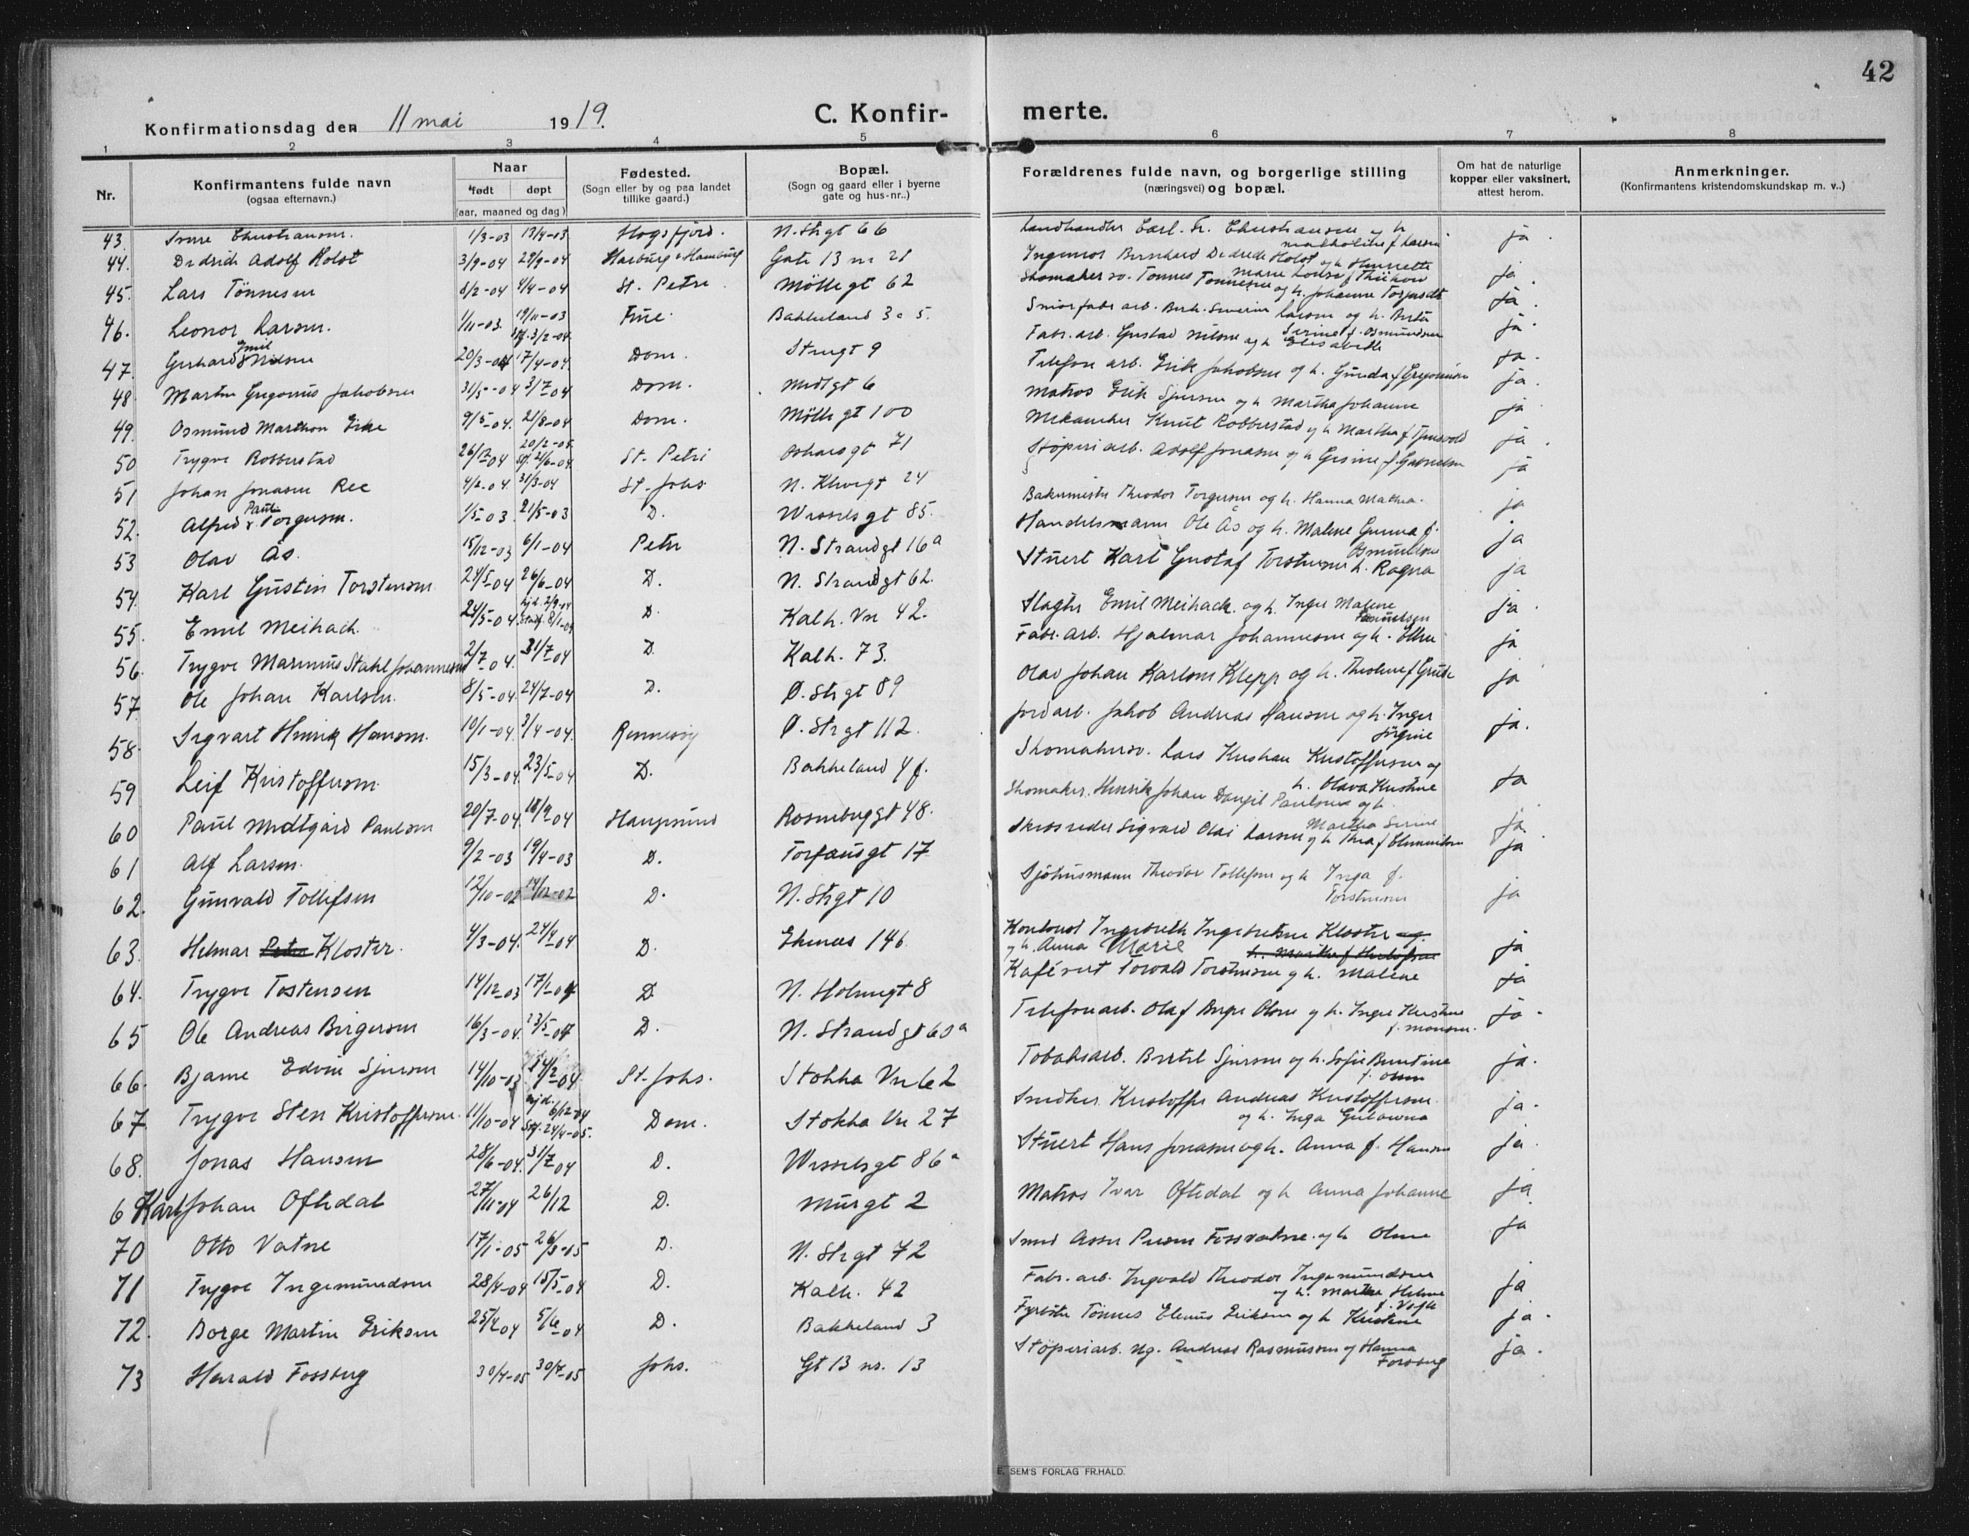 42
Konfirmationsdag den 11 mai 1919. C. Konfirmerte.
1 2 3 4 5 6 7 8
Nr. Konfirmantens fulde navn (ogsaa efternavn.) Naar født døpt (aar, maaned og dag) Fødested. (Sogn eller by og paa landet tillike gaard.) Bopæl. (Sogn og gaard eller i byerne gate og hus-nr..) Forældrenes fulde navn, og borgerlige stilling (næringsvei) og bopæl. Om hat de naturlige kopper eller vaksinert, attest herom. Anmerkninger. (Konfirmantens kristendomskundskap m. v..)
43. Christiansen. 1/3-03 13/4-03 Høgsfjord. N. Stgt 66 Landhandler Carl. Fr. Christiansen og h. ja.
44. Didrich Adolf Holst 3/9-04 29/9-04 Harburg v Hamburg Gate 13 nr 21 Ingeniør Bernhard Holst og h. Henriette Marie Louise f. ja.
45. Lars Tønnesen 8/2-04 4/4-04 St. Petri Møllegt 62 Skomakersv. Tønnes Tønnesen og h. Johanne ja.
46. Leonor Larsen. 1/11-03 19/11-03 Bakkeland 3. 5. Larsen og h. Berte Serine f. Osmundsen ja.
47. Gerhard Emil Nilsen 20/3-04 17/4-04 Dom. 9 Fabr. arb. Gustav Nilsen og h. Elisabeth ja.
48 Martin Gregorius Jakobsen 31/5-04 3/7-04 Dom. Midtgt 6 Telefon arb. Erik Jakobsen og h. Gunda f. Gregoriusen ja.
49. Osmund Marthon Eike 9/5-04. 21/8-04 Dom. Møllegt 100 Matros Erik Sjursen og h. Martha Johanne ja
50 Trygve Robberstad 26/12-04 20/2-05 St. Petri Oskarsgt 71 Mekaniker Knut Robberstad og h. Martha f. Tjensvold ja.
51 Johan Jonasen Ree 4/2-04 31/3-04 St. Johs. N. Kleivgt 24 Støperiarb. Adolf Jonasen og h. Gesine f. Gabrielsen ja
52. Alfred Paul Torgersen. 1/5-03. 21/5-03 D. Wesselsgt 85. Bakermester Theodor Torgersen og h. Hanna Mathea. ja
53 Olav Ås. 15/12-03 6/1-04 Petri N. Strandgt 16a Handelsmann Ole Ås og h. Malene Gurina f. Osmundsen ja
54. Karl Gustin Torstensen 24/5-04 26/6-04 D. N. Strandgt 62. Stuert Karl Gustaf Torstensen h. Ragna ja
55. Emil Meihack. 24/5-04 D. Kalh. Vn 42. Slagter Emil Meihack. og h. Inger Malene ja.
56. Trygve Marinius Stahl Johannesen 2/7-04. 31/7-04 D. Kalh. 73. Fabr. arb. Hjalmar Johannesen og h. Ellen ja
57 Ole Johan Karlsen. 8/5-04 24/7-04 D. Ø. Stgt 89 Olav Johan Karlsen Klepp og h. Tholine f. Grude ja
58. Sigvart Henrik Hansen. 10/1-04. 3/4-04. Rennesøy Ø. Strgt 112. Jordarb. Jakob Andreas Hansen og h. Inger Jørgine ja.
59 Leif Kristoffersen. 15/3-04. 23/5-04 D. Bakkeland 4 f. Skomakersv. Lars Kristian Kristoffersen og h. Olava Kristine ja
60 Paul Midtgård Paulsen 20/7-04. 18/9-04 Haugesund Rosenbergt 48. Skomaker. Henrik Johan Paulsen og h. Martha Serine ja.
61 Alf Larsen. 9/2-03 19/4-03 D. Torfæusgt 17 Skrædder Sigvard Olai Larsen og h. Thea f. ja
62. Gunvald Tollefsen 12/10-02 14/12-02 D. N. Stgt 10 Sjøhusmann Theodor Tollefsen og h. Inga f. Torstensen ja
63. Helmar Petra Kloster. 4/3-04. 24/4-04 D. Ekenæs 146. Kontorist Ingebreth Ingebretsen Kloster og h. Anna Marie ja
64. Trygve Tostensen 14/12-03 17/1-04 D. N. Holmegt 8 Kafévert Torvald Torstensen og h. Malene ja
65 Ole Andreas Birgersen 16/3-04. 23/5-04 D. N. Strandgt 60a Telefonarb. Olaf Birger Olsen og h. Inger Kristine f. Monsen. ja.
66. Bjarne Edvin Sjursen 14/10-03 14/2-04 St. Johs. Stokka Vn 62 Tobaksarb. Bertil Sjursen og h. Sofie Berntine f. Olsen ja.
67. Trygve Sten Kristoffersen. 11/10-04 hjd. 6/12-04 Stf. 24/4-05. Dom. Stokka Vn 27 Smedker. Kristoffer Andreas Kristoffersen og h. Inga ja.
68. Jonas Hansen 28/6-04. 31/7-04 D. Wesselsgt 86a Stuert Hans Jonasen og h. Anna f. Hansen ja.
6 Karl Johan Oftedal 27/11-04 26/12 D. Murgt 2 Matros Ivar Oftedal og h Anna Johanne ja
70 Otto Vatne 17/1-05 26/3-05 D. N. Stgt 72 Smed Asser Fossvatne. og h Oline ja
71 Trygve Ingemundsen 28/4-04 15/5-04 D. Kalh. 42 Fabr. arb. Ingvald Theodor Ingemundsen og h. Martha Helene f. ja
72. Borge Martin Eriksen 25/4-04 5/6-04 D. Bakkeland 3 Fyrbøter Tønnes Elenus Eriksen og h Kristine ja.
73 Harald Fossberg 30/4-05 30/7-05 Johs. Gt 13 nr. 13 Støperiarb. Ng. Andreas Rasmussen og Hanna Forsberg ja.
E. SEM'S FORLAG FR.HALD.